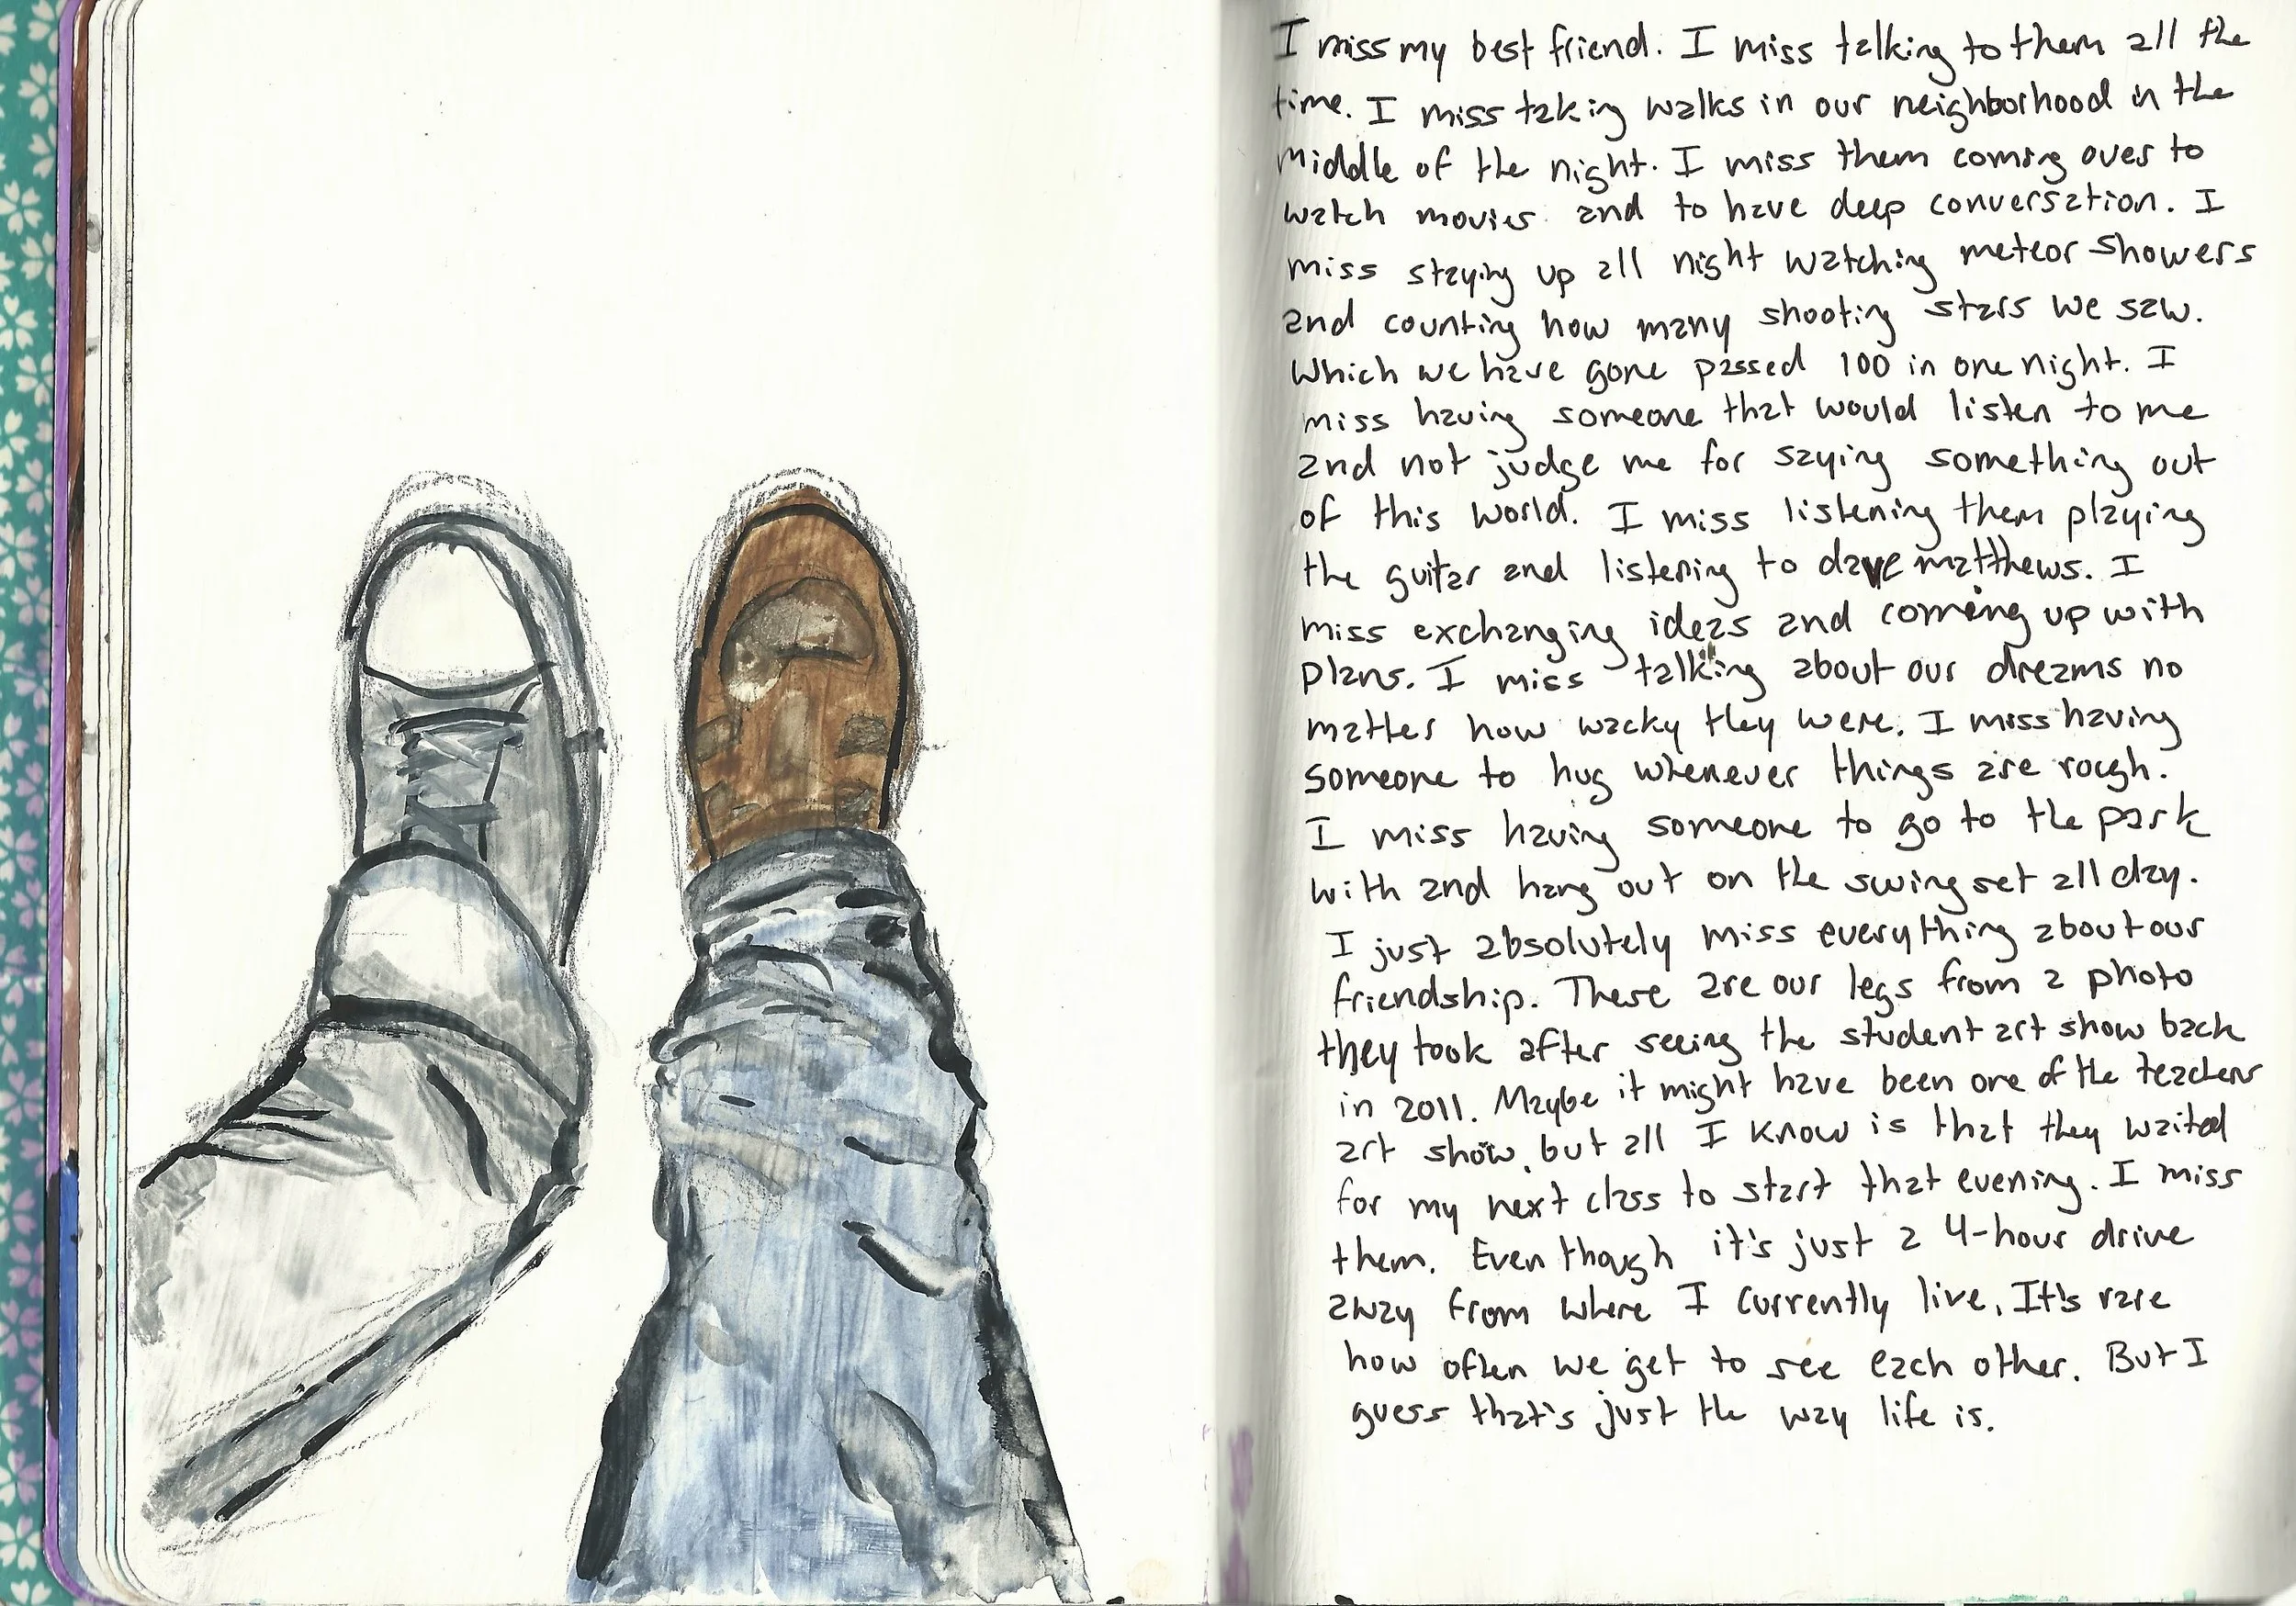 I miss my best friend. I miss talking to them all the
time. I miss taking walks in our neighborhood in the
middle of the night. I miss them coming over to
watch movies and to have deep conversation. I
miss staying up all night watching meteor showers
and counting how many shooting stars we saw.
Which we have gone passed 100 in one night. I
miss having someone that would listen to me
and not judge me for saying something out
of this world. I miss listening them playing
the guitar and listening to dave matthews. I
miss exchanging ideas and coming up with
plans. I miss talking about our dreams no
matter how wacky they were. I miss having
someone to hug whenever things are rough.
I miss having someone to go to the park
with and hang out on the swing set all day.
I just absolutely miss everything about our
friendship. These are our legs from a photo
they took after seeing the student art show back
in 2011. Maybe it might have been one of the teachers
art show, but all I know is that they waited
for my next class to start that evening. I miss
them. Even though it's just a 4-hour drive
away from where I currently live, It's rare
how often we get to see each other. But I
guess that's just the way life is.